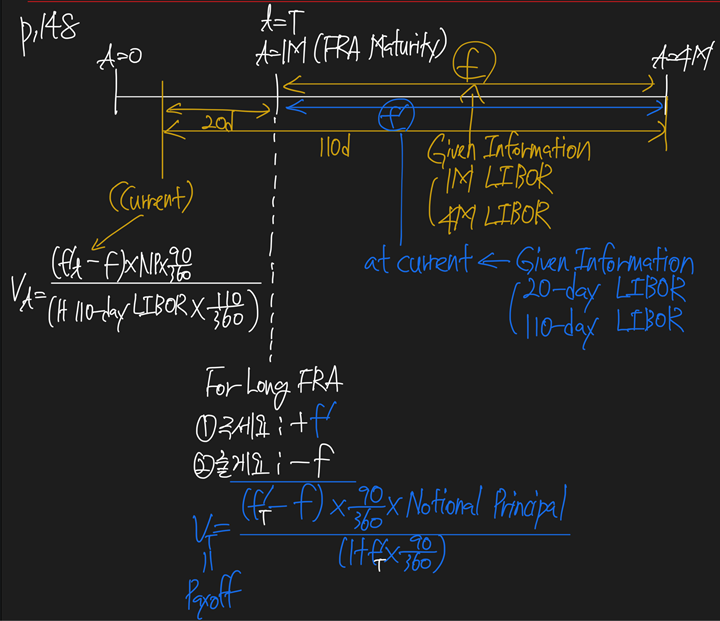 p.148
t=T
t=0
t=1M (FRA Maturity)
t=4M
f
20d
f'
110d
Given Information
1M LIBOR
4M LIBOR
(Current)
at current ← Given Information
20-day LIBOR
110-day LIBOR
Vt = (f't - f)×NP×90/360
(1+110-day LIBOR × 110/360)
For Long FRA
① 주세요 ; + f'
② 줄게요 ; - f
VT = (f'T - f) × 90/360 × Notional Principal
(1+f'T × 90/360)
Payoff